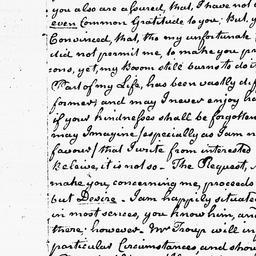 you also are assured, that, I have not
even Common Gratitude to you; But, y
Convinced, that, tho my unfortunate
did not permit me, to make you pr
ions, yet, my Bosom still burns to do i
Part of my Life, has been vastly dif
former; and may I never enjoy ha
if your kindnesses shall be forgotten
may Imagine (especially as I am n
favour) that I write from interested
Beleive, it is not so - The Request,
make you, concerning me, proceeds
but Desire - I am happily situated
in most sences, you know him, and
there; however - Mr Troup will in
particular Circumstances, and shou